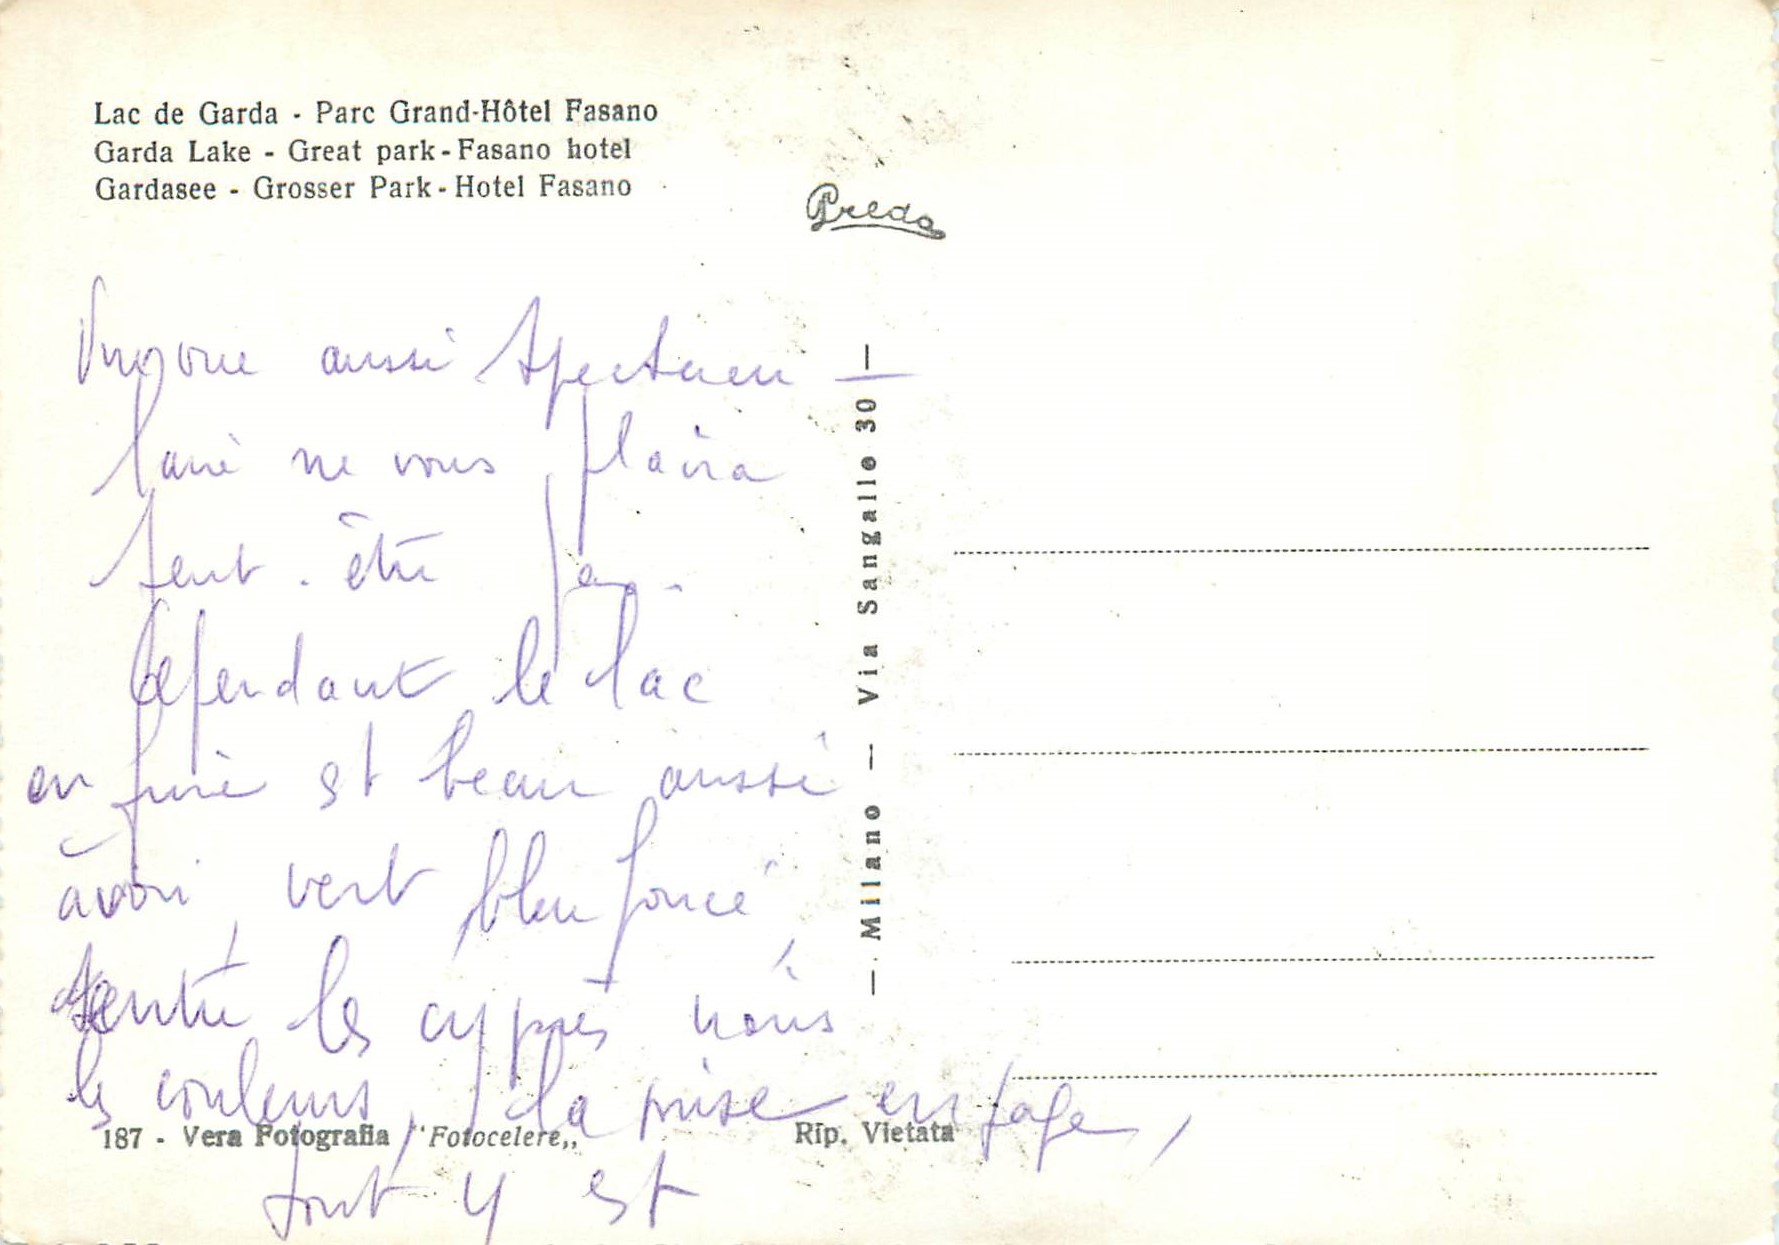 Lac de Garda - Parc Grand-Hôtel Fasano
Garda Lake - Great park - Fasano hotel
Gardasee - Grosser Park - Hotel Fasano
Preda
aussi spectacu
laire ne vous plaira
peut-être pas.
Cependant le lac
en furie est beau aussi
à voir, vert bleu foncé,
contre les cyprès noirs
les couleurs, la prise en page,
tout y est
— Milano — Via Sangallo 30 —
187 - Vera Fotografia "Fotocelere,,
Rip. Vietata